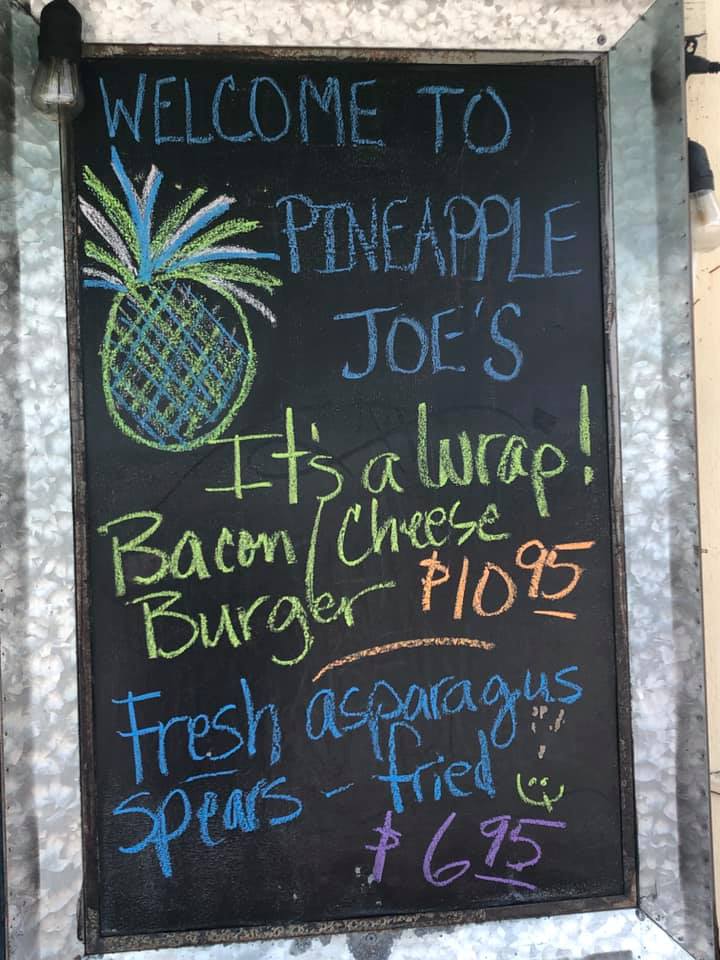 WELCOME TO
PINEAPPLE
JOE'S
It's a wrap!
Bacon/Cheese
Burger $10 95
Fresh asparagus
spears - fried
$6 95